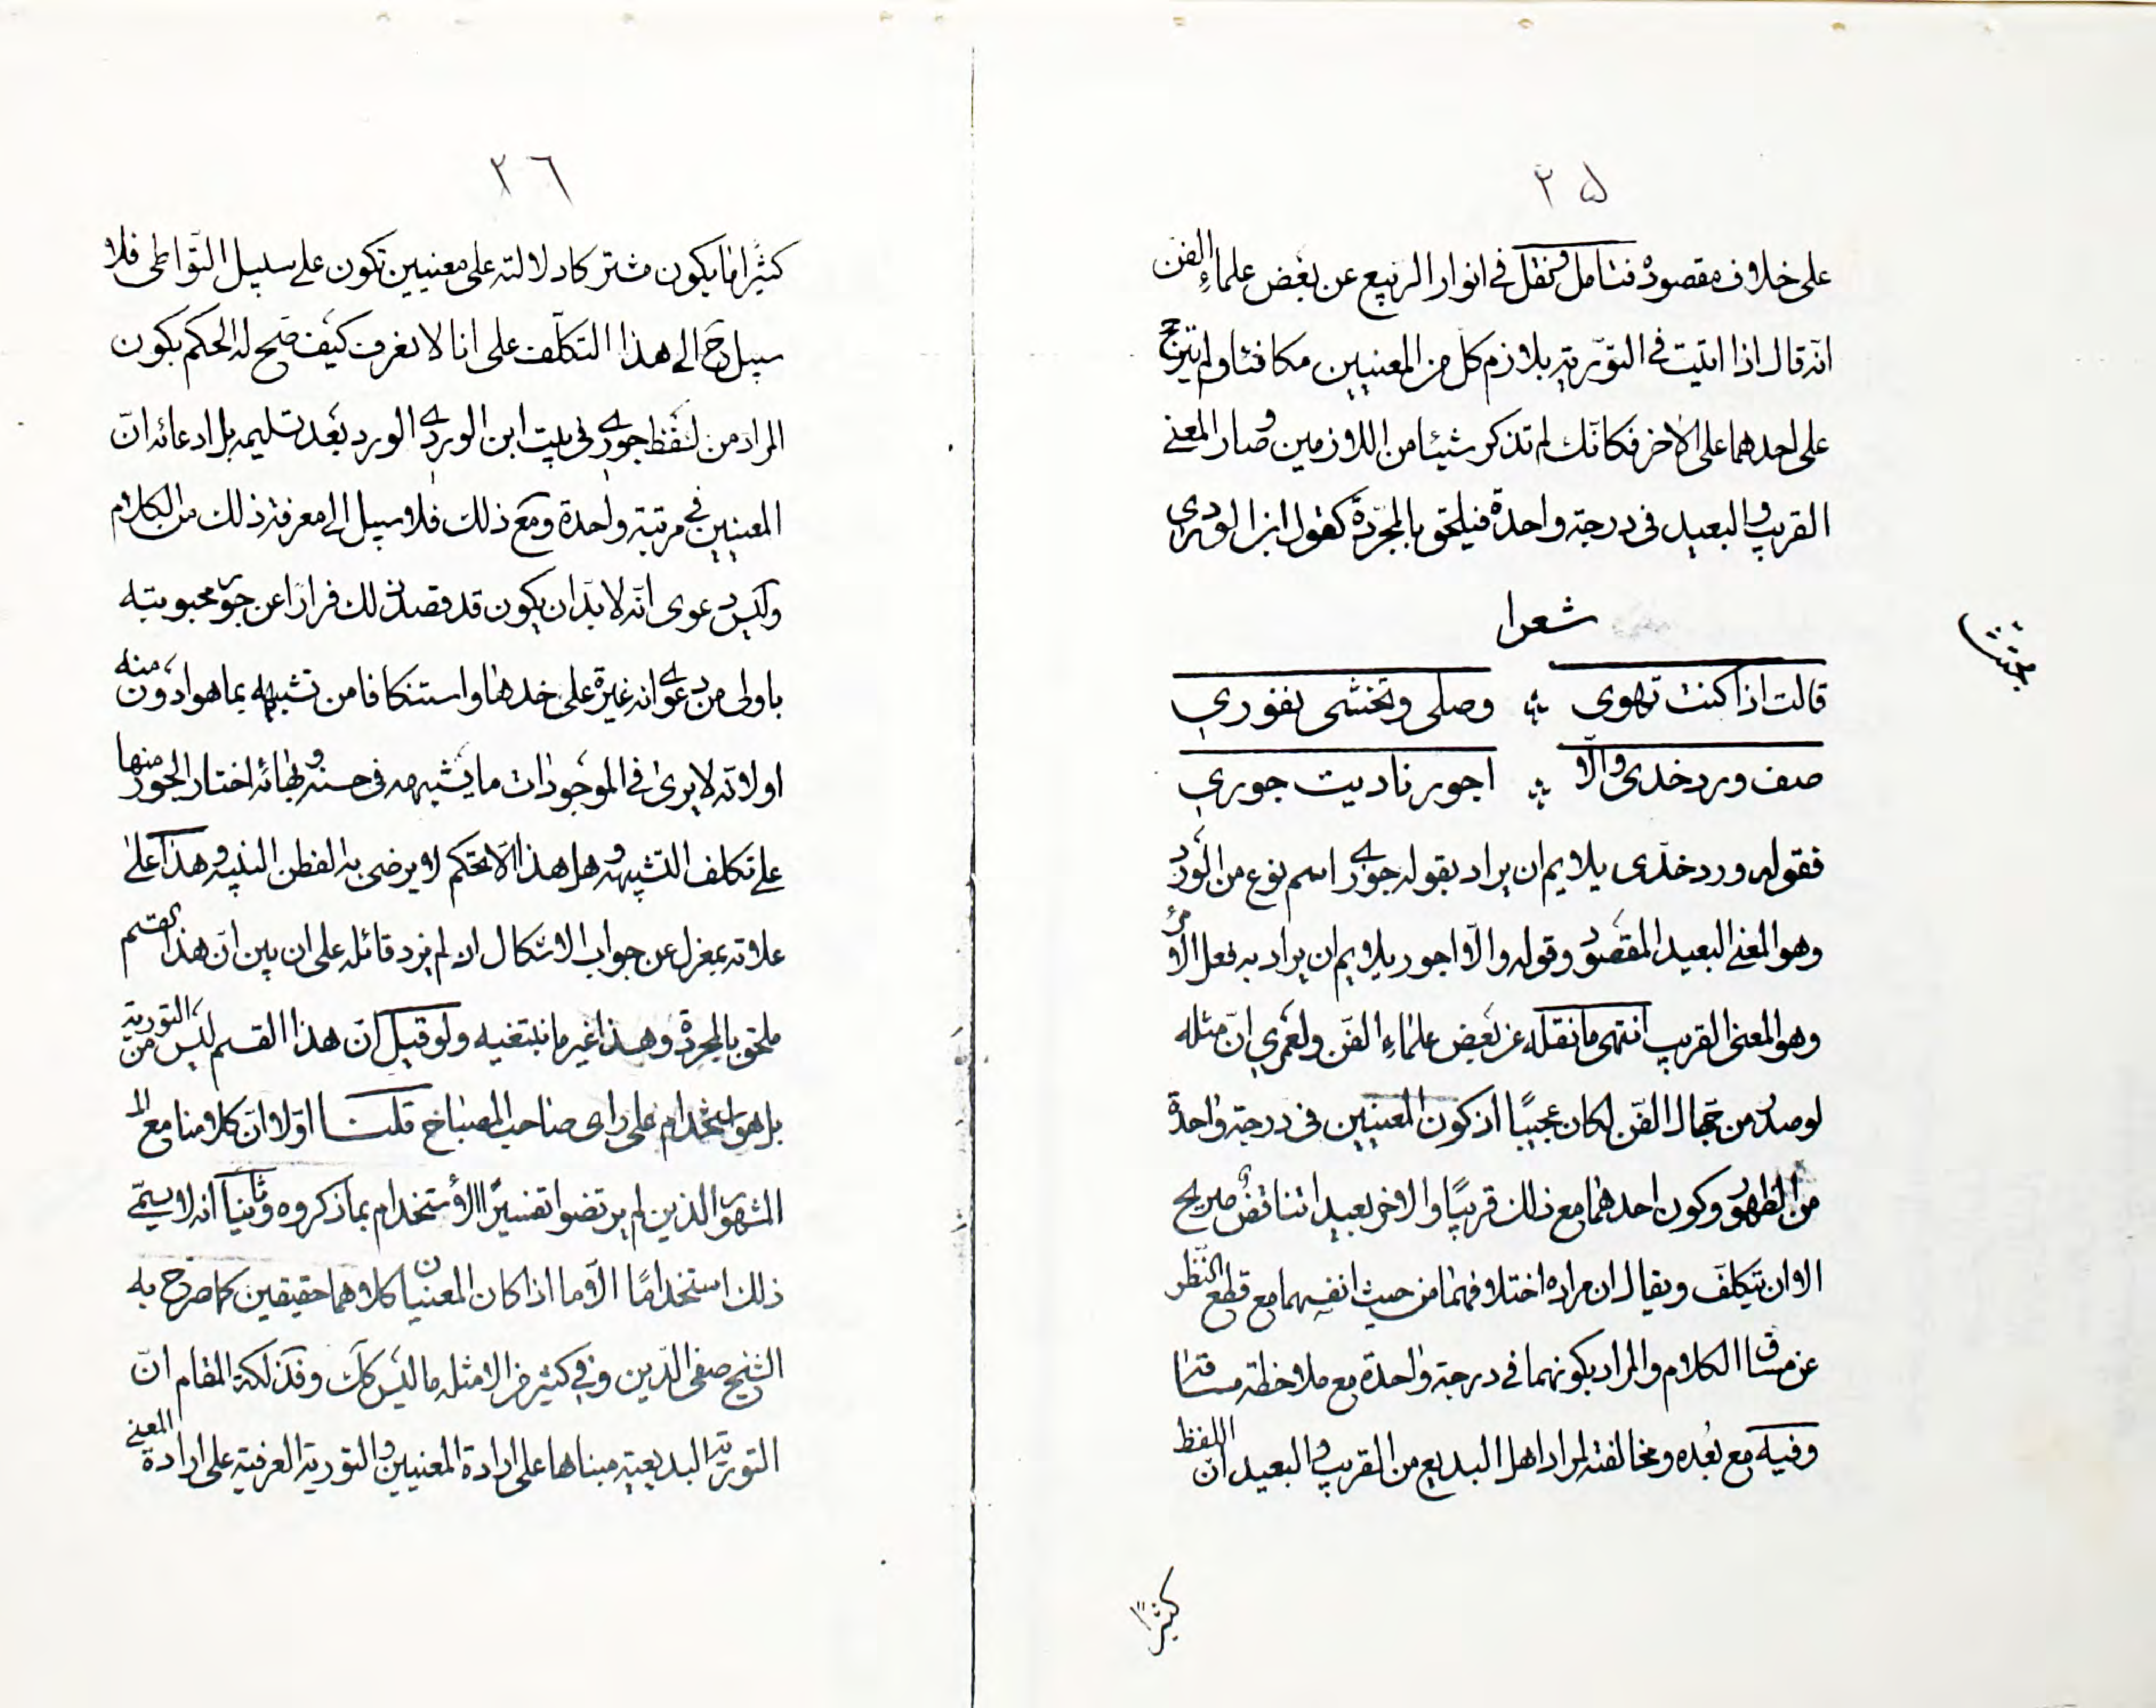 ٢٥
على خلاف مقصوده فتامل ونقل في انوار الربيع عن بعض علماء الفن
انه قال اذا اتيت في التورية بلازم كل من المعنيين مكافئا ولم يترجح
على احدهما على الاخر فكانك لم تذكر شيئا من اللازمين وصار المعنى
القريب والبعيد في درجة واحدة فيلحق بالمجردة كقول ابن الوردي
شعرا
قالت اذا كنت تهوى وصلي وتخشى نفوري
صف ورد خدي والا اجور ناديت جوري
فقوله ورد خدى يلايم ان يراد بقوله جورى اسم نوع من الورد
وهو المعنى البعيد المقصود وقوله والا اجور يلايم ان يراد به فعل الامر
وهو المعنى القريب انتهى ما نقله عن بعض علماء الفن ولعمري ان مثله
لو صدر من جهال الفن لكان عجيبا اذ كون المعنيين في درجة واحدة
من الظهور وكون احدهما مع ذلك قريبا والاخر بعيدا تناقض صريح
الا ان يتكلف ويقال ان مراده اختلافهما من حيث انفسهما مع قطع النظر
عن مساق الكلام والمراد بكونهما في درجة واحدة مع ملاحظة مساقنا
وفيه مع بعده ومخالفته لمراد اهل البديع من القريب والبعيد ان اللفظ
كثيرا
٢٦
كثيرا ما يكون مشتركا دلالته على معنيين تكون على سبيل التواطى فلا
سبيل ح الى هذا التكلف على انا لا نعرف كيف صح له الحكم بكون
المراد من لفظ جورى في بيت ابن الوردى الورد بعد تسليمه بل ادعائه ان
المعنيين في مرتبة واحدة ومع ذلك فلا سبيل الى معرفة ذلك من الكلام
وليس دعوى انه لا بد ان يكون قد قصد ذلك فرارا عن جور محبوبته
باولى من دعوى انه غيرة على خدها واستنكافا من تشبيهه بما هو ادون منه
او لانه لا يرى في الموجودات ما يشبهه في حسنه وبهائه اختار الجور منها
على تكلف التشبيه وهل هذا الا تحكم لا يرضى به الفطن النبيه وهذا على
علاته بمعزل عن جواب الاشكال ان لم يزد قائله على ان بين ان هذا القسم
ملحق بالمجردة وهذا غير ما نبتغيه ولو قيل ان هذا القسم ليس من التورية
بل هو استخدام على راى صاحب المصباح قلنا اولا ان كلامنا مع
المشهور الذين لم يرتضوا تفسير الاستخدام بما ذكروه وثانيا انه لا يسمى
ذلك استخداما الا ما اذا كان المعنيان كلاهما حقيقين كما صرح به
الشيخ صفي الدين وفي كثير من الامثله ما ليس كك وفذلكة المقام ان
التورية البديعية مبناها على ارادة المعنيين والتورية العرفية على ارادة المعنى